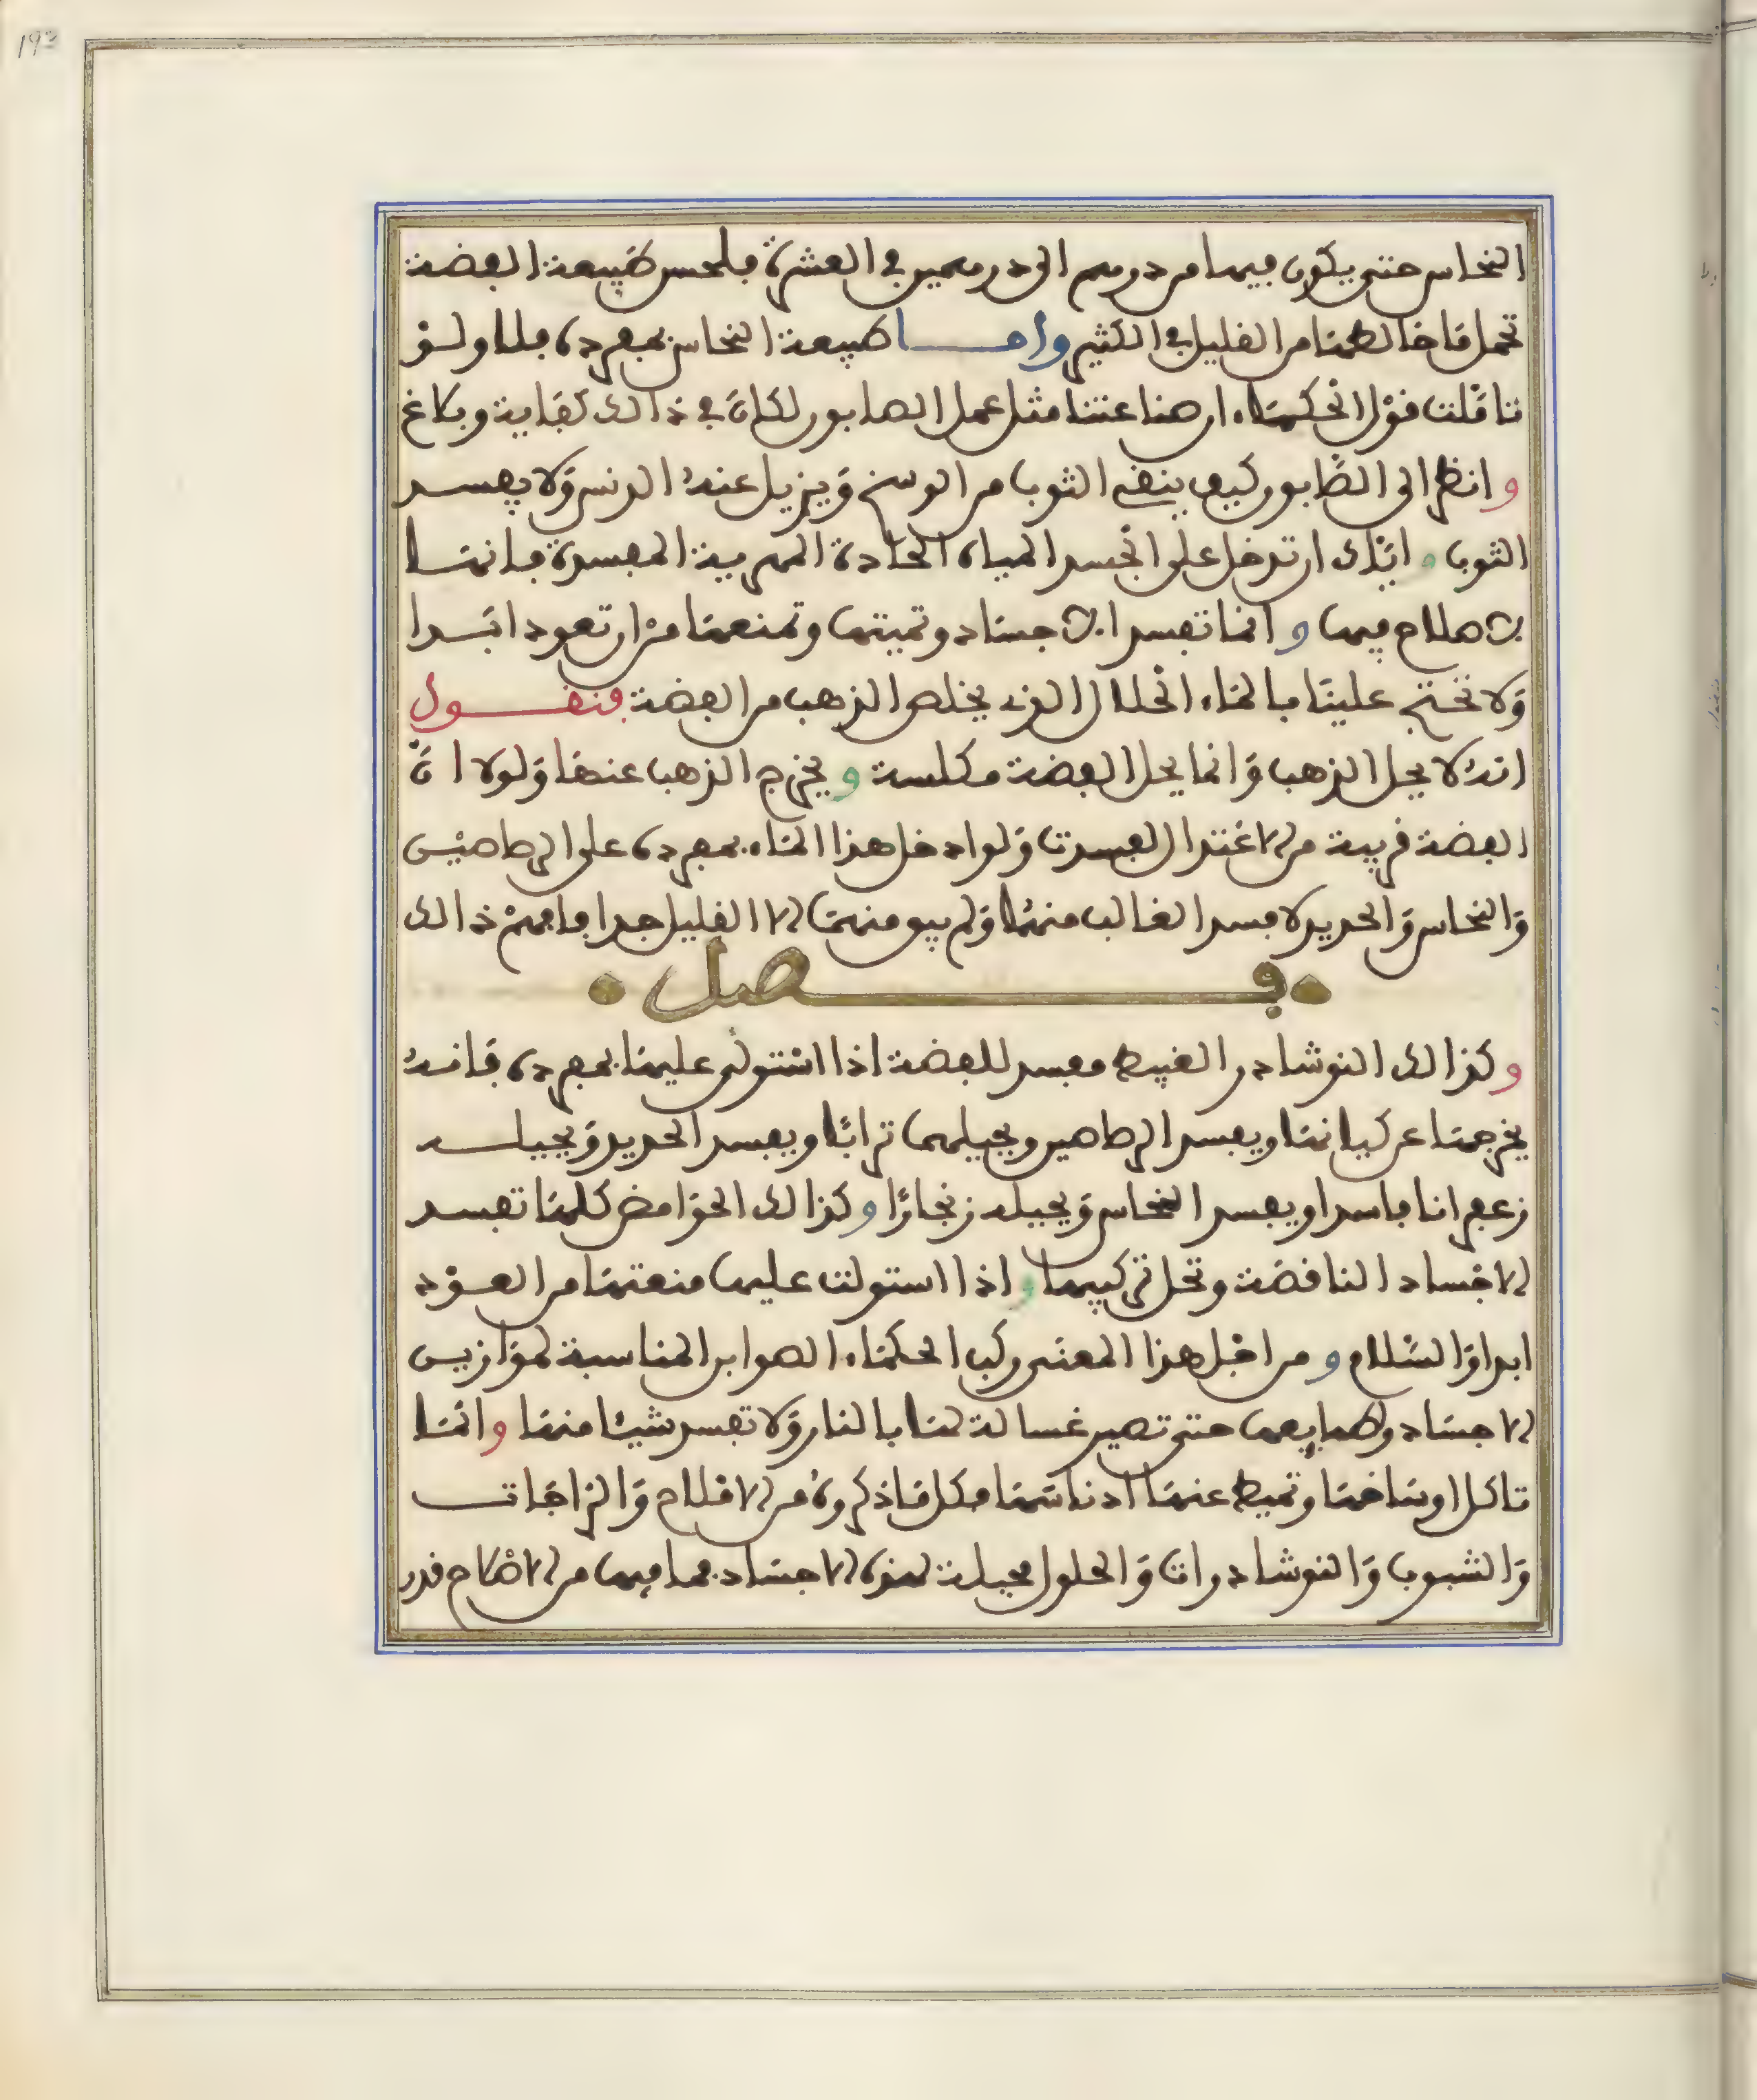 193
النحاس حتى يكون فيها من درهم الى درهمين في العشرة فلحسن طبيعة الفضة
تحمل ما خالطها من القليل في الكثير واما طبيعة النحاس بمفرده فلا ولو
تاملت قول الحكماء ان صناعتنا مثل عمل الصابون لكان في ذالك كفاية وبلاغ
وانظر الى الصابون كيف ينقي الثوب من الوسخ ويزيل عنه الدنس ولا يفسد
الثوب واياك ان تدخل على الجسد المياه الحادة المهرية المفسدة فانها
لا صلاح فيها وانما تفسد الاجساد وتميتها وتمنعها من ان تعود ابدا
ولا تحتج علينا بالماء الحلال الذي يخلص الذهب من الفضة فنقول
انه لا يحل الذهب وانما يحل الفضة مكلسة ويخرج الذهب عنها ولولا ان
الفضة قريبة من الاعتدال لفسدت ولو ادخل هذا الماء بمفرده على الرصاصين
والنحاس والحديد لافسد الغالب منها ولم يبق منها الا القليل جدا فافهم ذالك
فصل
وكذالك النوشادر الغبيط مفسد للفضة اذا استولى عليها بمفرده فانه
يخرجها عن كيانها ويفسد الرصاصين ويحيلهما ترابا ويفسد الحديد ويحيله
زعفرانا فاسدا ويفسد النحاس ويحيله زنجارا وكذالك الحوامض كلها تفسد
الاجساد الناقصة وتحل تركيبها واذا استولت عليها منعتها من العود
ابدا والسلام ومن اجل هذا المعنى ركب الحكماء الصوابن المناسبة لموازين
الاجساد ولطبايعها حتى تصير غسالة لها بالنار ولا تفسد شيئا منها وانما
تاكل اوساخها وتميط عنها ادناسها فكل ما ذكروه من الاملاح والزاجات
والشبوب والنوشادرات والحلول محيلة لهذه الاجساد بما فيها من الاملاح قدر